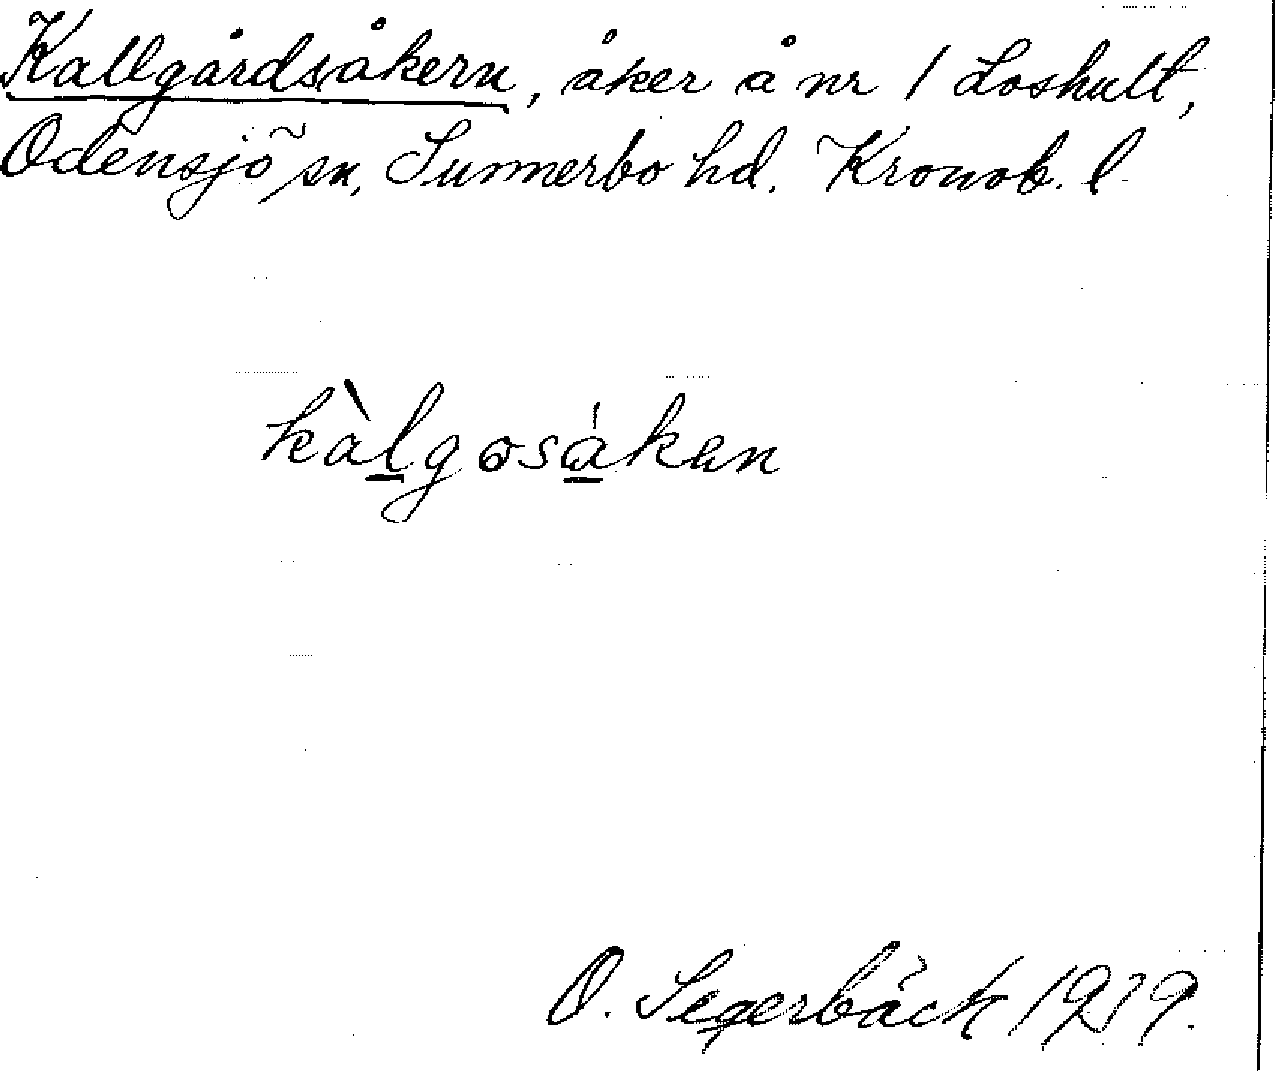 Kallgårdsåkern, åker å nr 1 Loshult,
Odensjö sn, Sunnerbo hd. Kronob. l
kàlgosåkan
O. Segerbäck 1939.